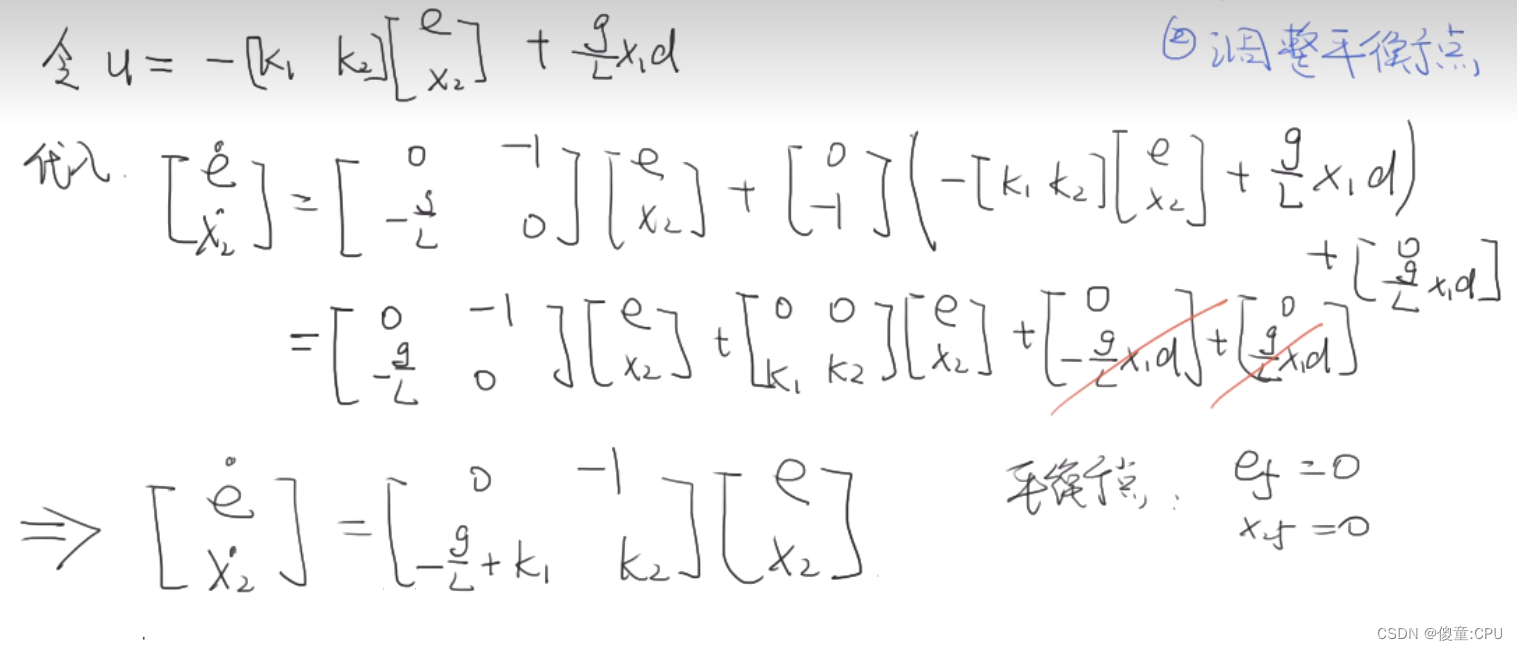 令 u = -[k₁ k₂][e; x₂] + g/L x₁d
② 调整平衡点
代入. [ė; ẋ₂] = [0 -1; -g/L 0][e; x₂] + [0; -1](-[k₁ k₂][e; x₂] + g/L x₁d) + [0; g/L x₁d]
= [0 -1; -g/L 0][e; x₂] + [0 0; k₁ k₂][e; x₂] + [0; -g/L x₁d] + [0; g/L x₁d]
⇒ [ė; ẋ₂] = [0 -1; -g/L + k₁ k₂][e; x₂]
平衡点: ef = 0
x₂f = 0
CSDN @傻童:CPU